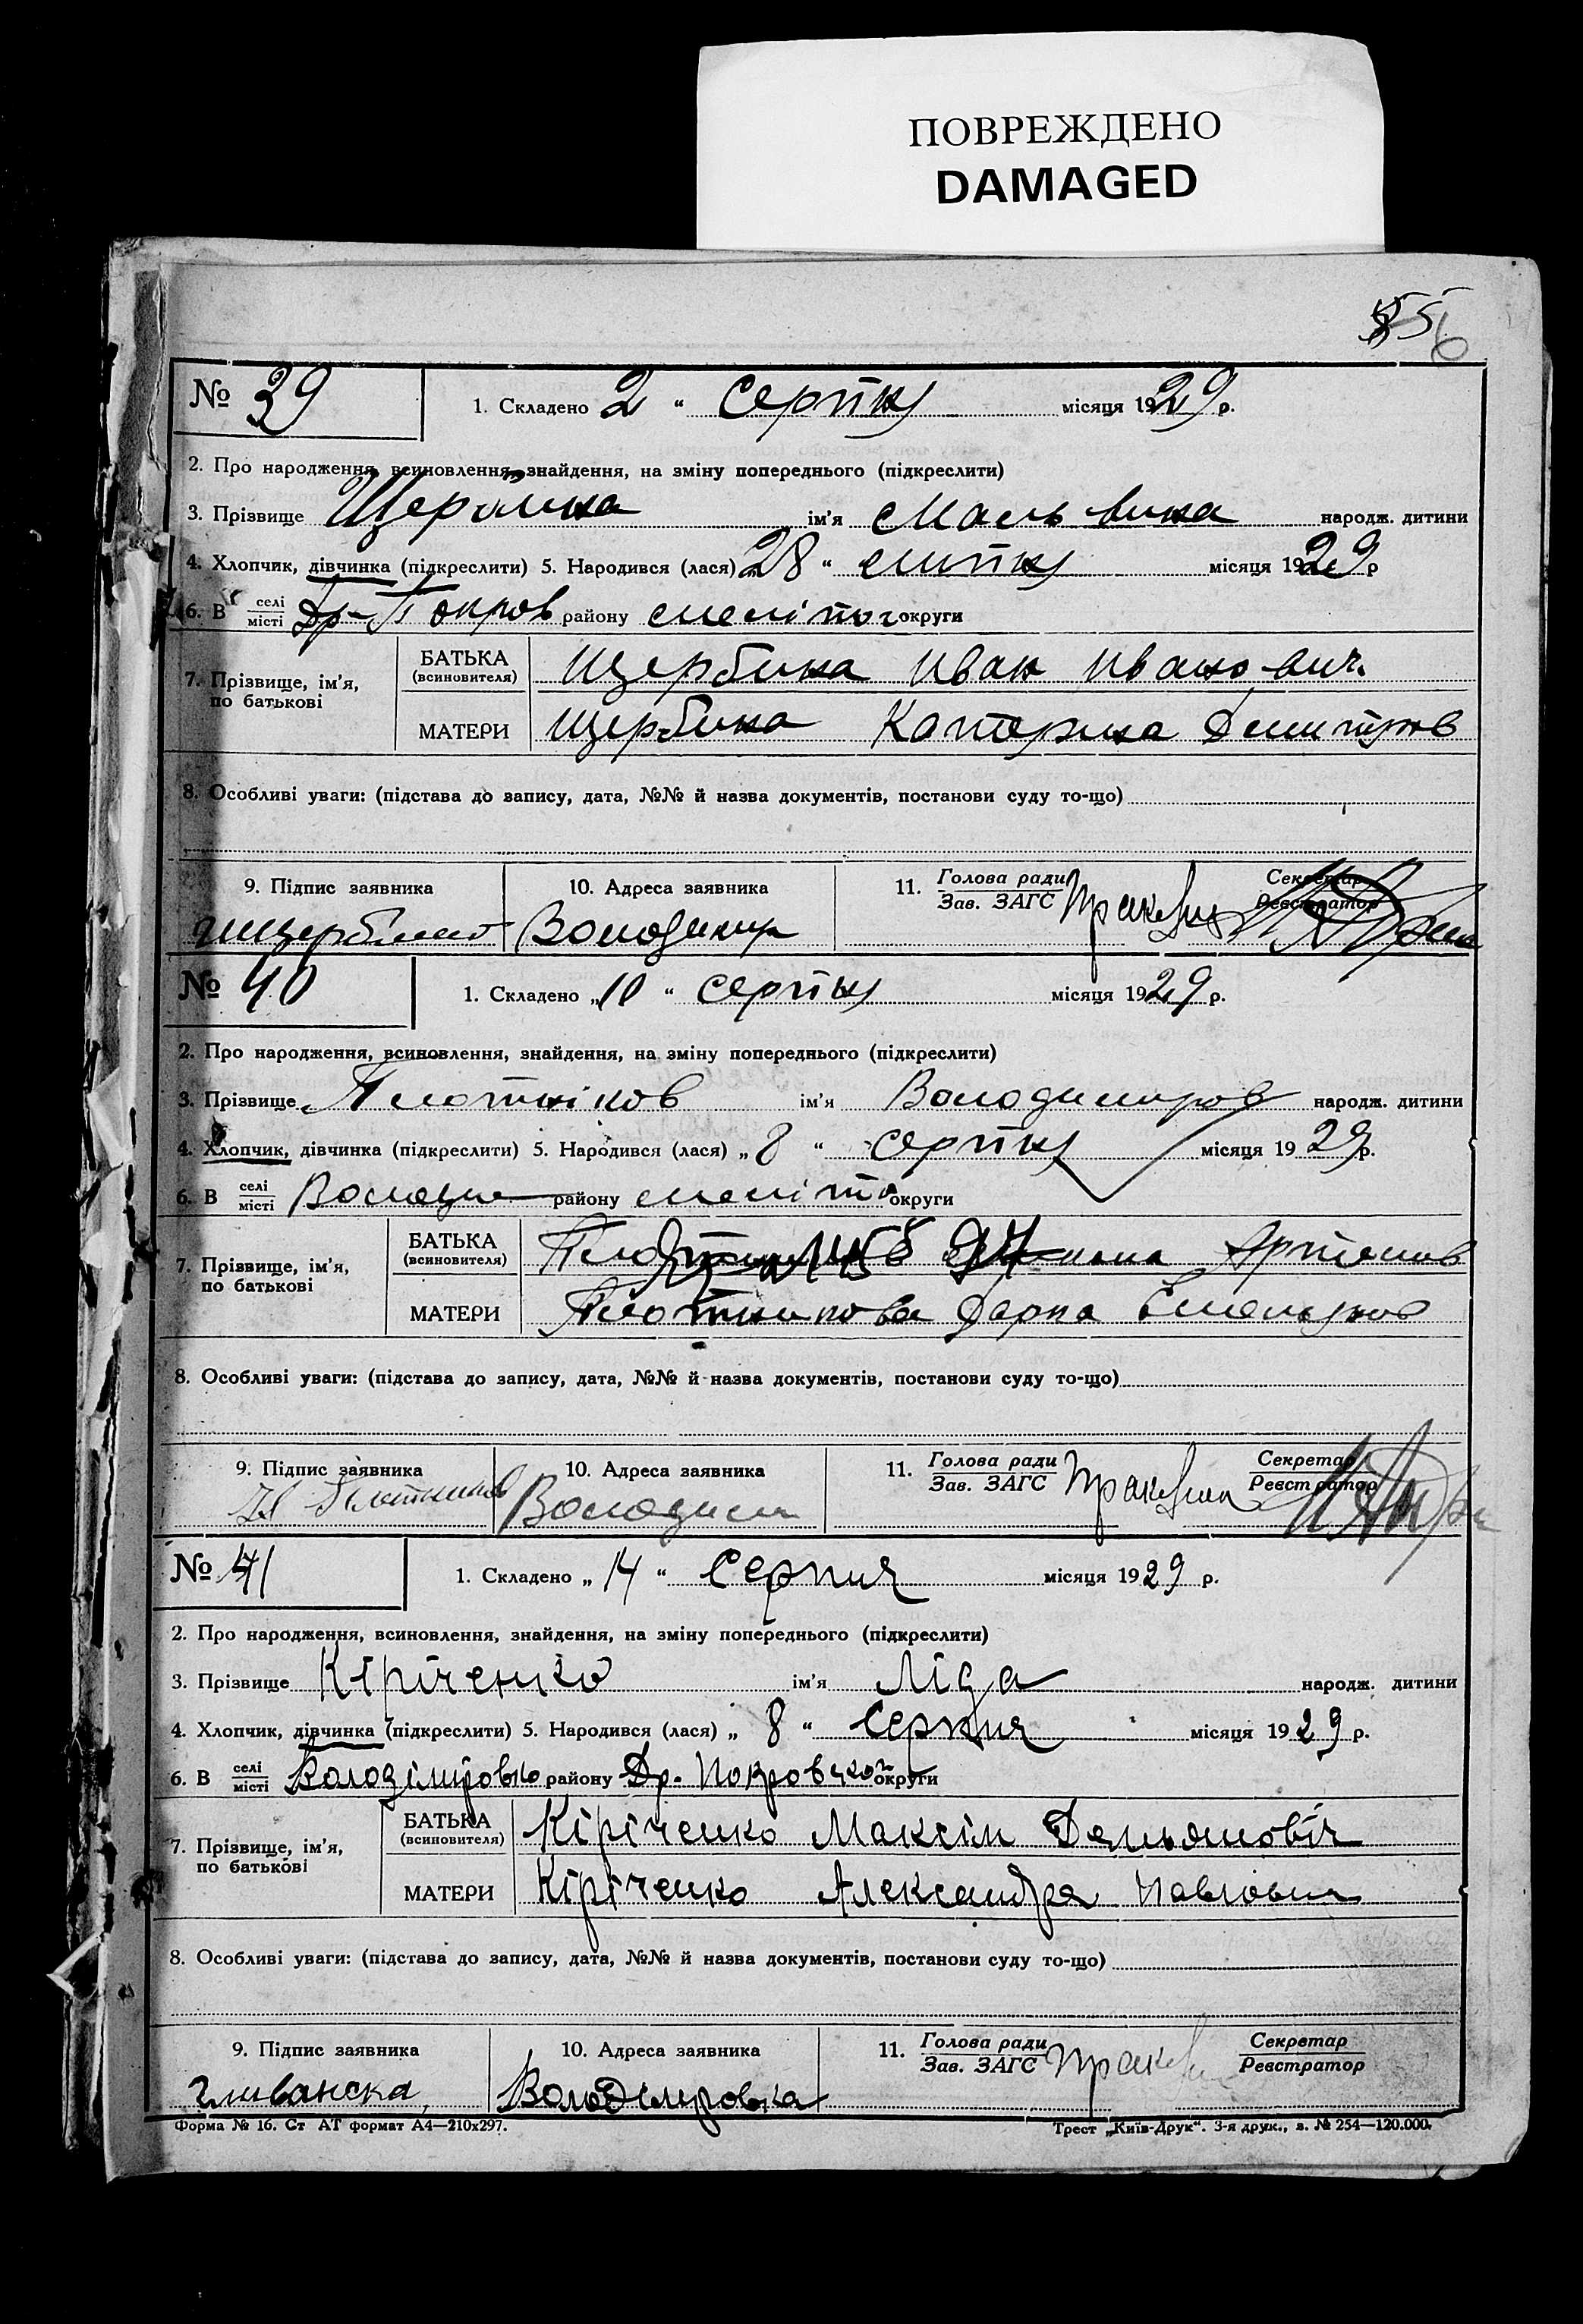 ПОВРЕЖДЕНО
DAMAGED
№ 39
1. Складено 2 “ серпня місяця 1929 р.
2. Про народження, всиновлення, знайдення, на зміну попереднього (підкреслити)
3. Прізвище Щербина ім’я Мальвина народж. дитини
4. Хлопчик, дівчинка (підкреслити) 5. Народився (лася) 28 “ липня місяця 1929 р
6. В селі/місті Др-Покров району меліпог округи
7. Прізвище, ім’я, по батькові
БАТЬКА (всиновителя) Щербина Иван Иванович
МАТЕРИ Щербина Катерина Дмитров
8. Особливі уваги: (підстава до запису, дата, №№ й назва документів, постанови суду то-що)
9. Підпис заявника
10. Адреса заявника
11. Голова ради/Зав. ЗАГС
Секретар/Реєстратор
Володимир
№ 40
1. Складено „10 “ серпня місяця 1929 р.
2. Про народження, всиновлення, знайдення, на зміну попереднього (підкреслити)
3. Прізвище Плотніков ім’я Володимиров народж. дитини
4. Хлопчик, дівчинка (підкреслити) 5. Народився (лася) „ 8 “ серпня місяця 1929 р.
6. В селі/місті Володим району меліто округи
7. Прізвище, ім’я, по батькові
БАТЬКА (всиновителя) Артемов
МАТЕРИ Плотникова Дарка Емельянов
8. Особливі уваги: (підстава до запису, дата, №№ й назва документів, постанови суду то-що)
9. Підпис заявника
10. Адреса заявника
11. Голова ради/Зав. ЗАГС
Секретар/Реєстратор
Плотников Володим
№ 41
1. Складено „ 14 “ Серпня місяця 1929 р.
2. Про народження, всиновлення, знайдення, на зміну попереднього (підкреслити)
3. Прізвище Кіріченко ім’я Ліда народж. дитини
4. Хлопчик, дівчинка (підкреслити) 5. Народився (лася) „ 8 “ Серпня місяця 1929 р.
6. В селі/місті Володімировко району Др. Покровской округи
7. Прізвище, ім’я, по батькові
БАТЬКА (всиновителя) Кіріченко Максім Демьяновіч
МАТЕРИ Кіріченко Александра Павловна
8. Особливі уваги: (підстава до запису, дата, №№ й назва документів, постанови суду то-що)
9. Підпис заявника
10. Адреса заявника
11. Голова ради/Зав. ЗАГС
Секретар/Реєстратор
Володимровка
Форма № 16. Ст АТ формат А4—210х297.
Трест „Київ-Друк“. 3-я друк., з. № 254—120.000.